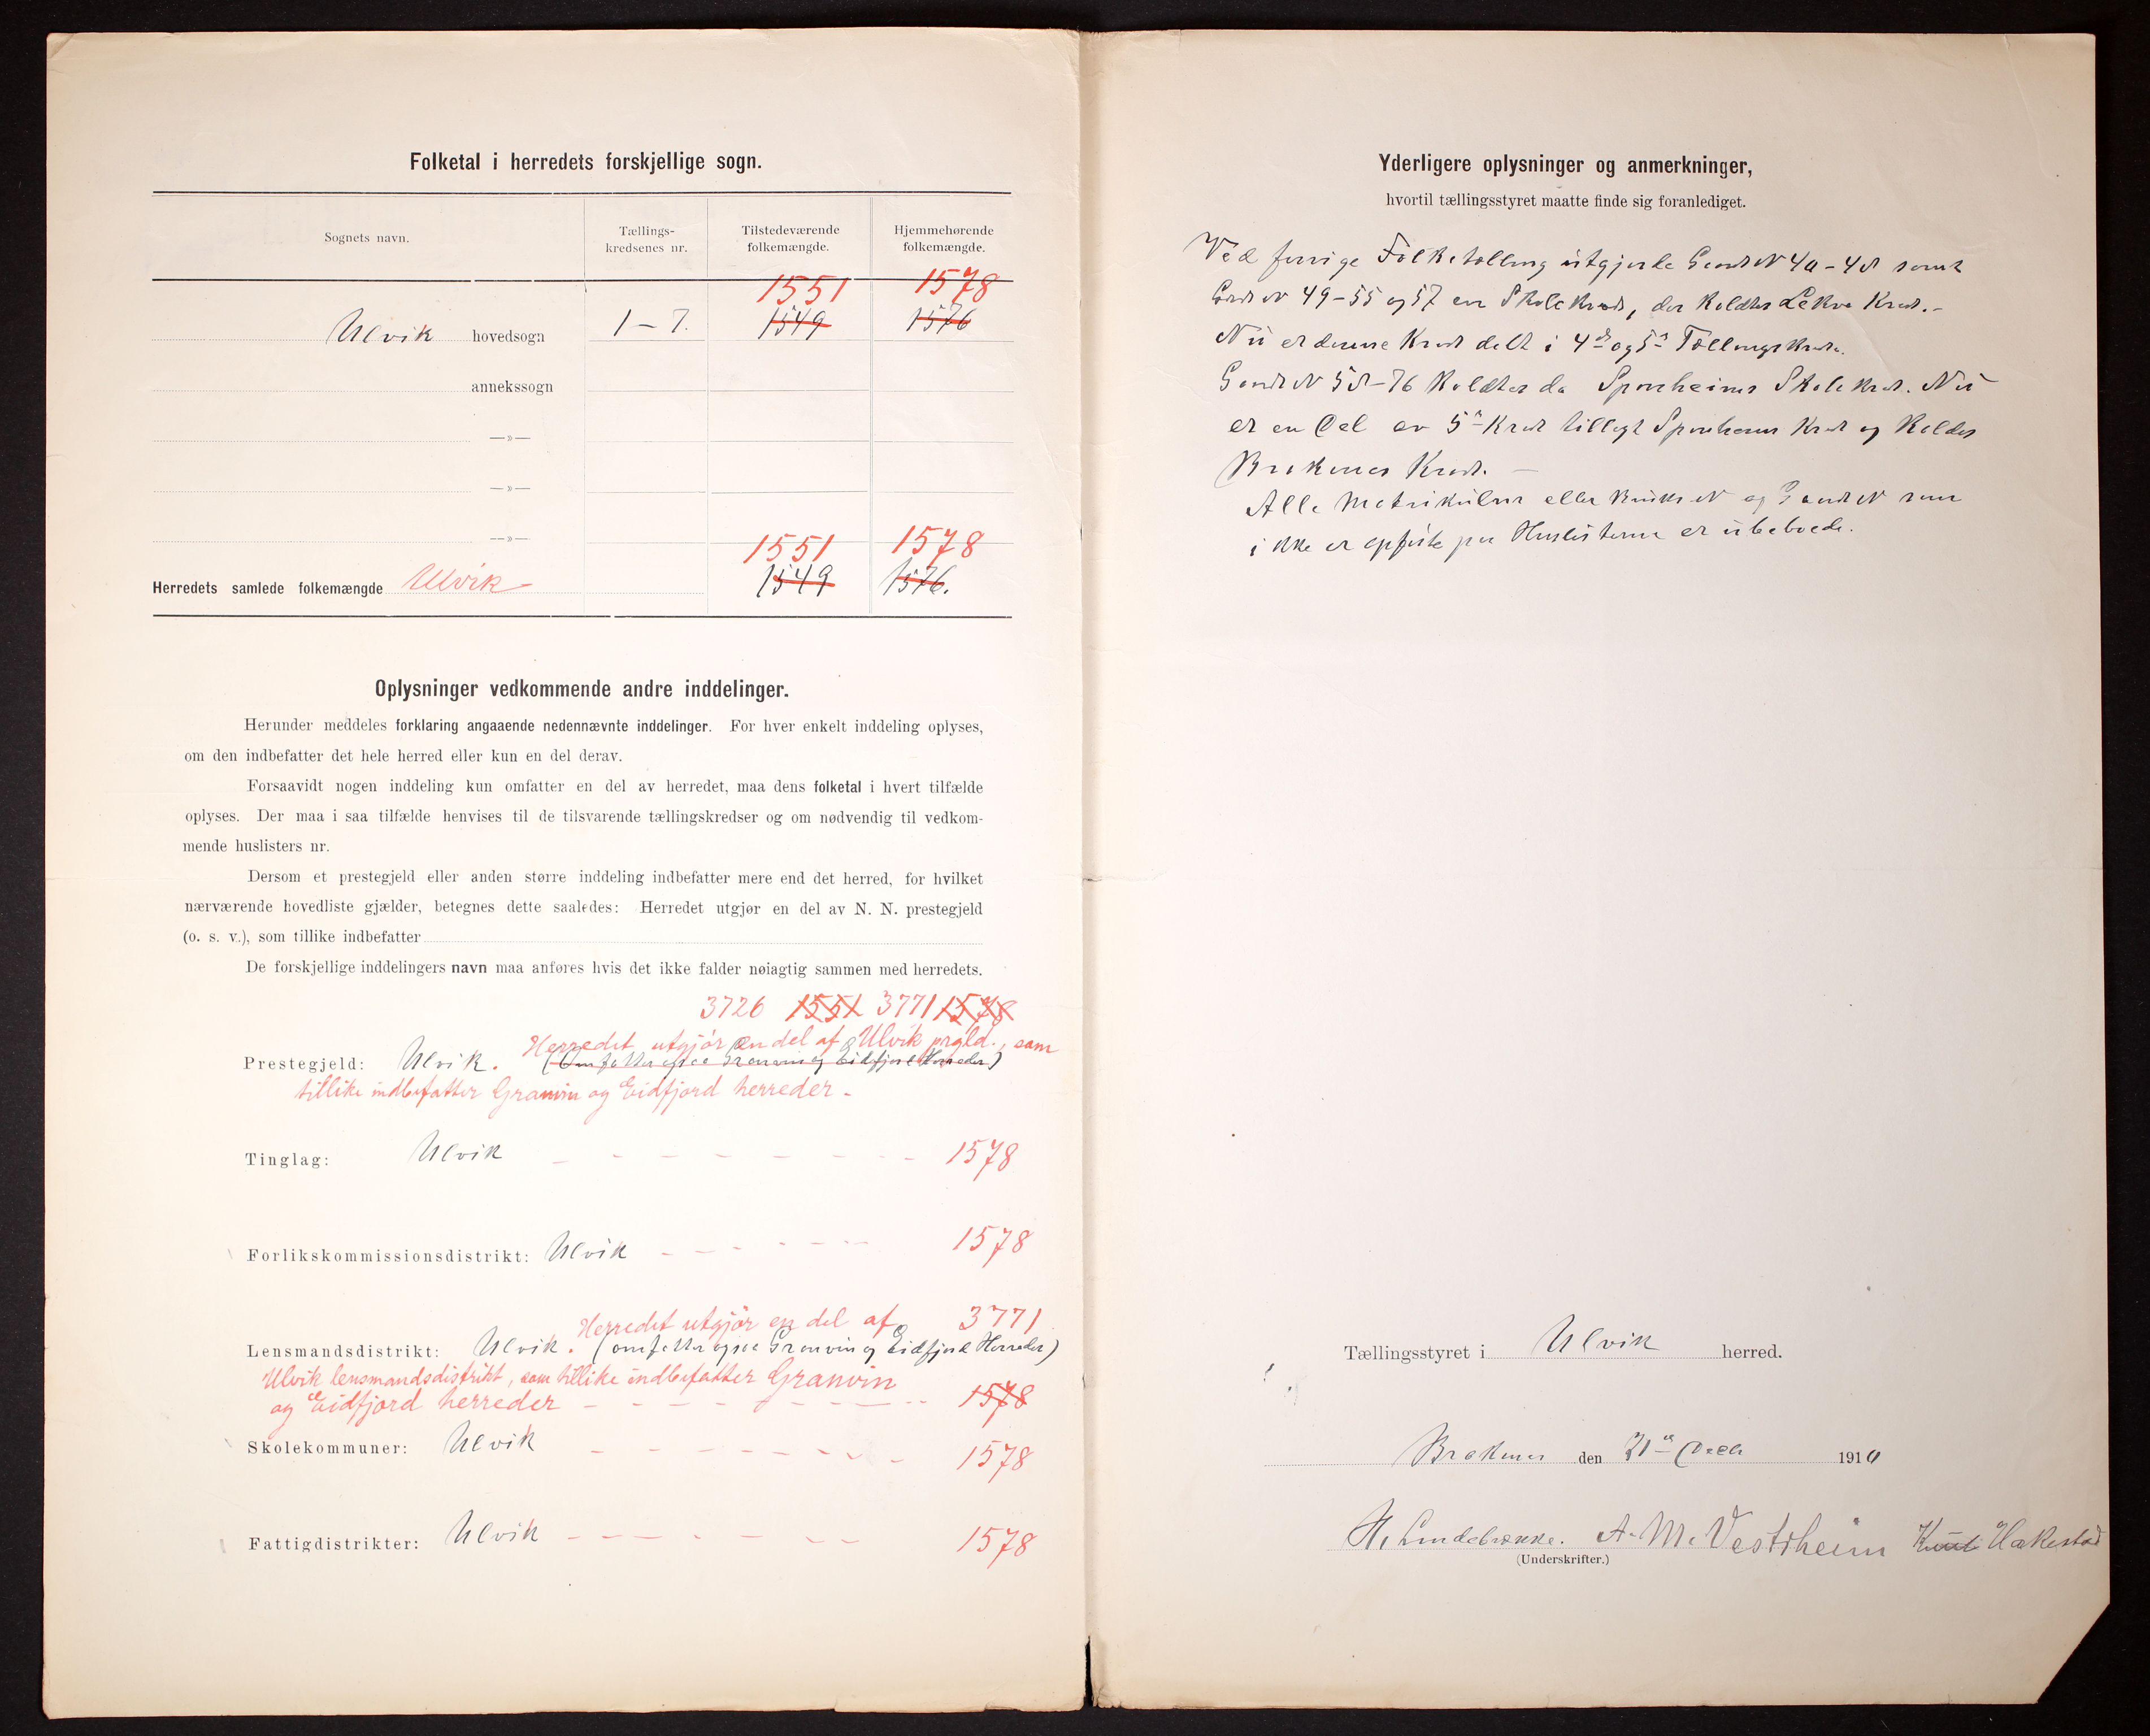 Folketal i herredets forskjellige sogn.
Sognets navn.
Tællings-
kredsenes nr.
Tilstedeværende
folkemængde.
Hjemmehørende
folkemængde.
1551 1578
Ulvik hovedsogn 1-7. 1549 1576
annekssogn
—»—
—»—
—»—
1551 1578
Herredets samlede folkemængde Ulvik 1549 1576.
Oplysninger vedkommende andre inddelinger.
Herunder meddeles forklaring angaaende nedennævnte inddelinger. For hver enkelt inddeling oplyses,
om den indbefatter det hele herred eller kun en del derav.
Forsaavidt nogen inddeling kun omfatter en del av herredet, maa dens folketal i hvert tilfælde
oplyses. Der maa i saa tilfælde henvises til de tilsvarende tællingskredser og om nødvendig til vedkom-
mende huslisters nr.
Dersom et prestegjeld eller anden større inddeling indbefatter mere end det herred, for hvilket
nærværende hovedliste gjælder, betegnes dette saaledes: Herredet utgjør en del av N. N. prestegjeld
(o. s. v.), som tillike indbefatter
De forskjellige inddelingers navn maa anføres hvis det ikke falder nøiagtig sammen med herredets.
3726 1551 3771 1578
Herredet utgjør en del af Ulvik prgld., som
Prestegjeld: Ulvik. (Omfatter ogsaa Granvin og Eidfjord Herreder)
tillike indbefatter Granvin og Eidfjord herreder -
Tinglag: Ulvik - - - - - - - - 1578
Forlikskommissionsdistrikt: Ulvik - - - - - - - 1578
Herredet utgjør en del af 3771
Lensmandsdistrikt: Ulvik. (omfatter ogsaa Granvin og Eidfjord Herreder)
Ulvik lensmandsdistrikt, som tillike indbefatter Granvin
og Eidfjord herreder - - - - - - - - 1578
Skolekommuner: Ulvik - - - - - - - - 1578
Fattigdistrikter: Ulvik - - - - - - - 1578
Yderligere oplysninger og anmerkninger,
hvortil tællingsstyret maatte finde sig foranlediget.
Ved forrige Folketælling utgjorde Gards N 40-48 samt
Gards N 49-55 og 57 en Skolekreds, der kaldtes Lekve Kreds.-
Nu er denne Kreds delt i 4de og 5te Tællingskreds.
Gards N 58-76 kaldtes da Sponheims Skolekreds. Nu
er en Del av 5te Kreds tillagt Sponheims Kreds og kaldes
Brakenes Kreds. -
Alle Matrikulnr eller Bruks N og Gards N som
ikke er opførte paa Huslisterne er ubeboede.
Tællingsstyret i Ulvik herred.
Brakenes den 21de 1910
H. Lindebrække. A. M. Vestrheim Knut Hakestad
(Underskrifter.)